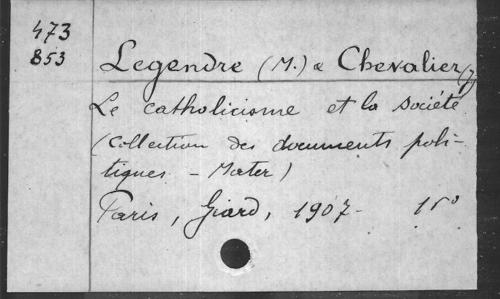 473
853
Legendre (M.) & Chevalier (J)
Le catholicisme et la société
(Collection des documents poli-
tiques - Mater)
Paris, Giard, 1907-